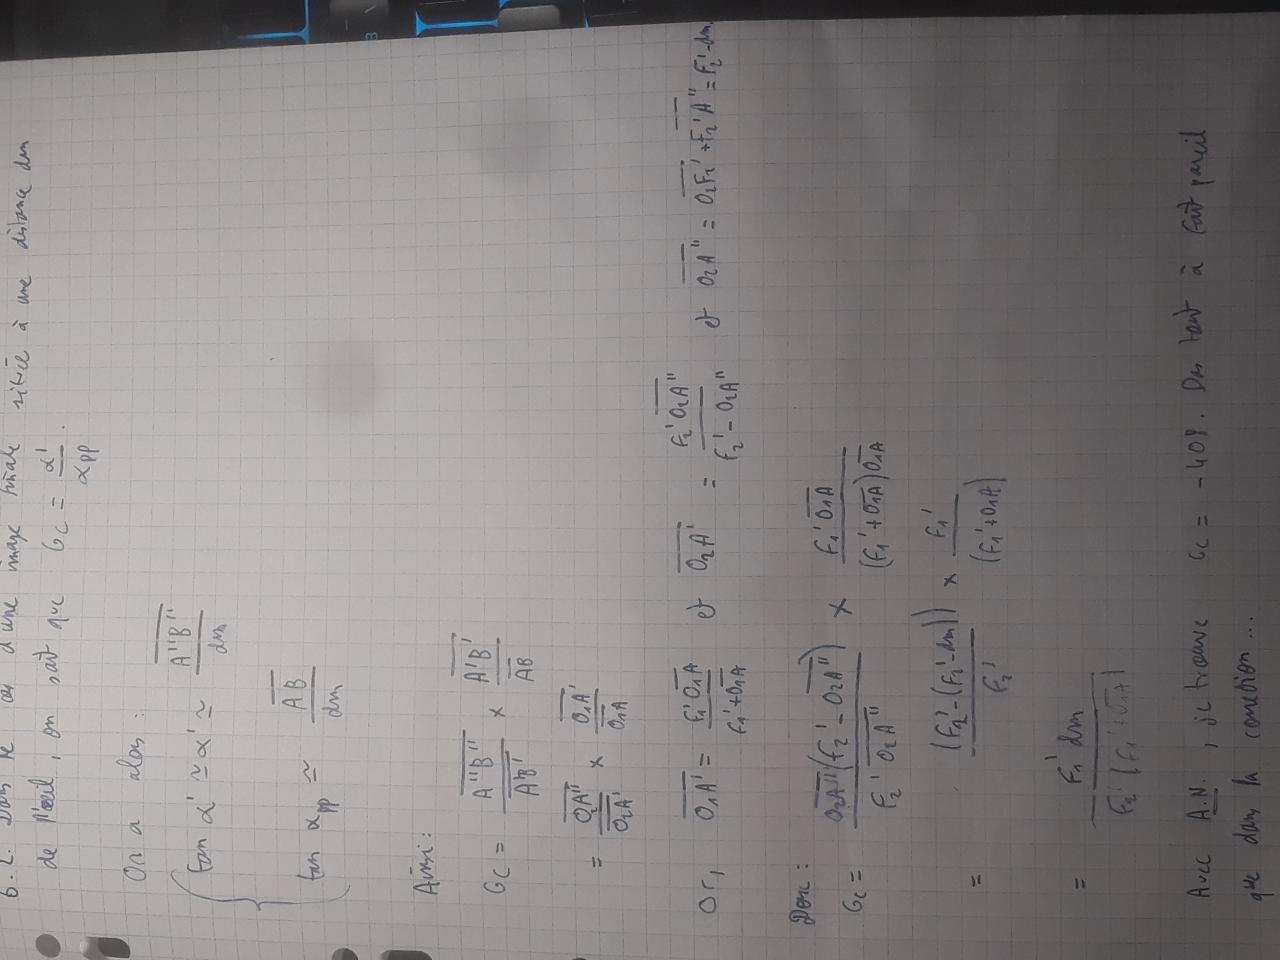 6.2. Dans le cas d'une image finale située à une distance dm
de l'oeil, on sait que Gc = α' / αpp.
On a alors :
tan α' ≃ α' ≃ A"B" / dm
tan αpp ≃ AB / dm
Ainsi :
Gc = A"B" / A'B' × A'B' / AB
= O₂A" / O₂A' × O₁A' / O₁A
Or, O₁A' = F₁' O₁A / F₁' + O₁A et O₂A' = F₂' O₂A" / F₂' - O₂A" et O₂A" = O₂F₂' + F₂'A" = F₂' - dm
Donc :
Gc = O₂A" (F₂' - O₂A") / F₂' O₂A" × F₁' O₁A / (F₁' + O₁A) O₁A
= (F₂' - (F₂' - dm)) / F₂' × F₁' / (F₁' + O₁A)
= F₁' dm / F₂' (F₁' + O₁A)
Avec A.N., je trouve Gc = -408. Pas tout à fait pareil
que dans la correction...
3